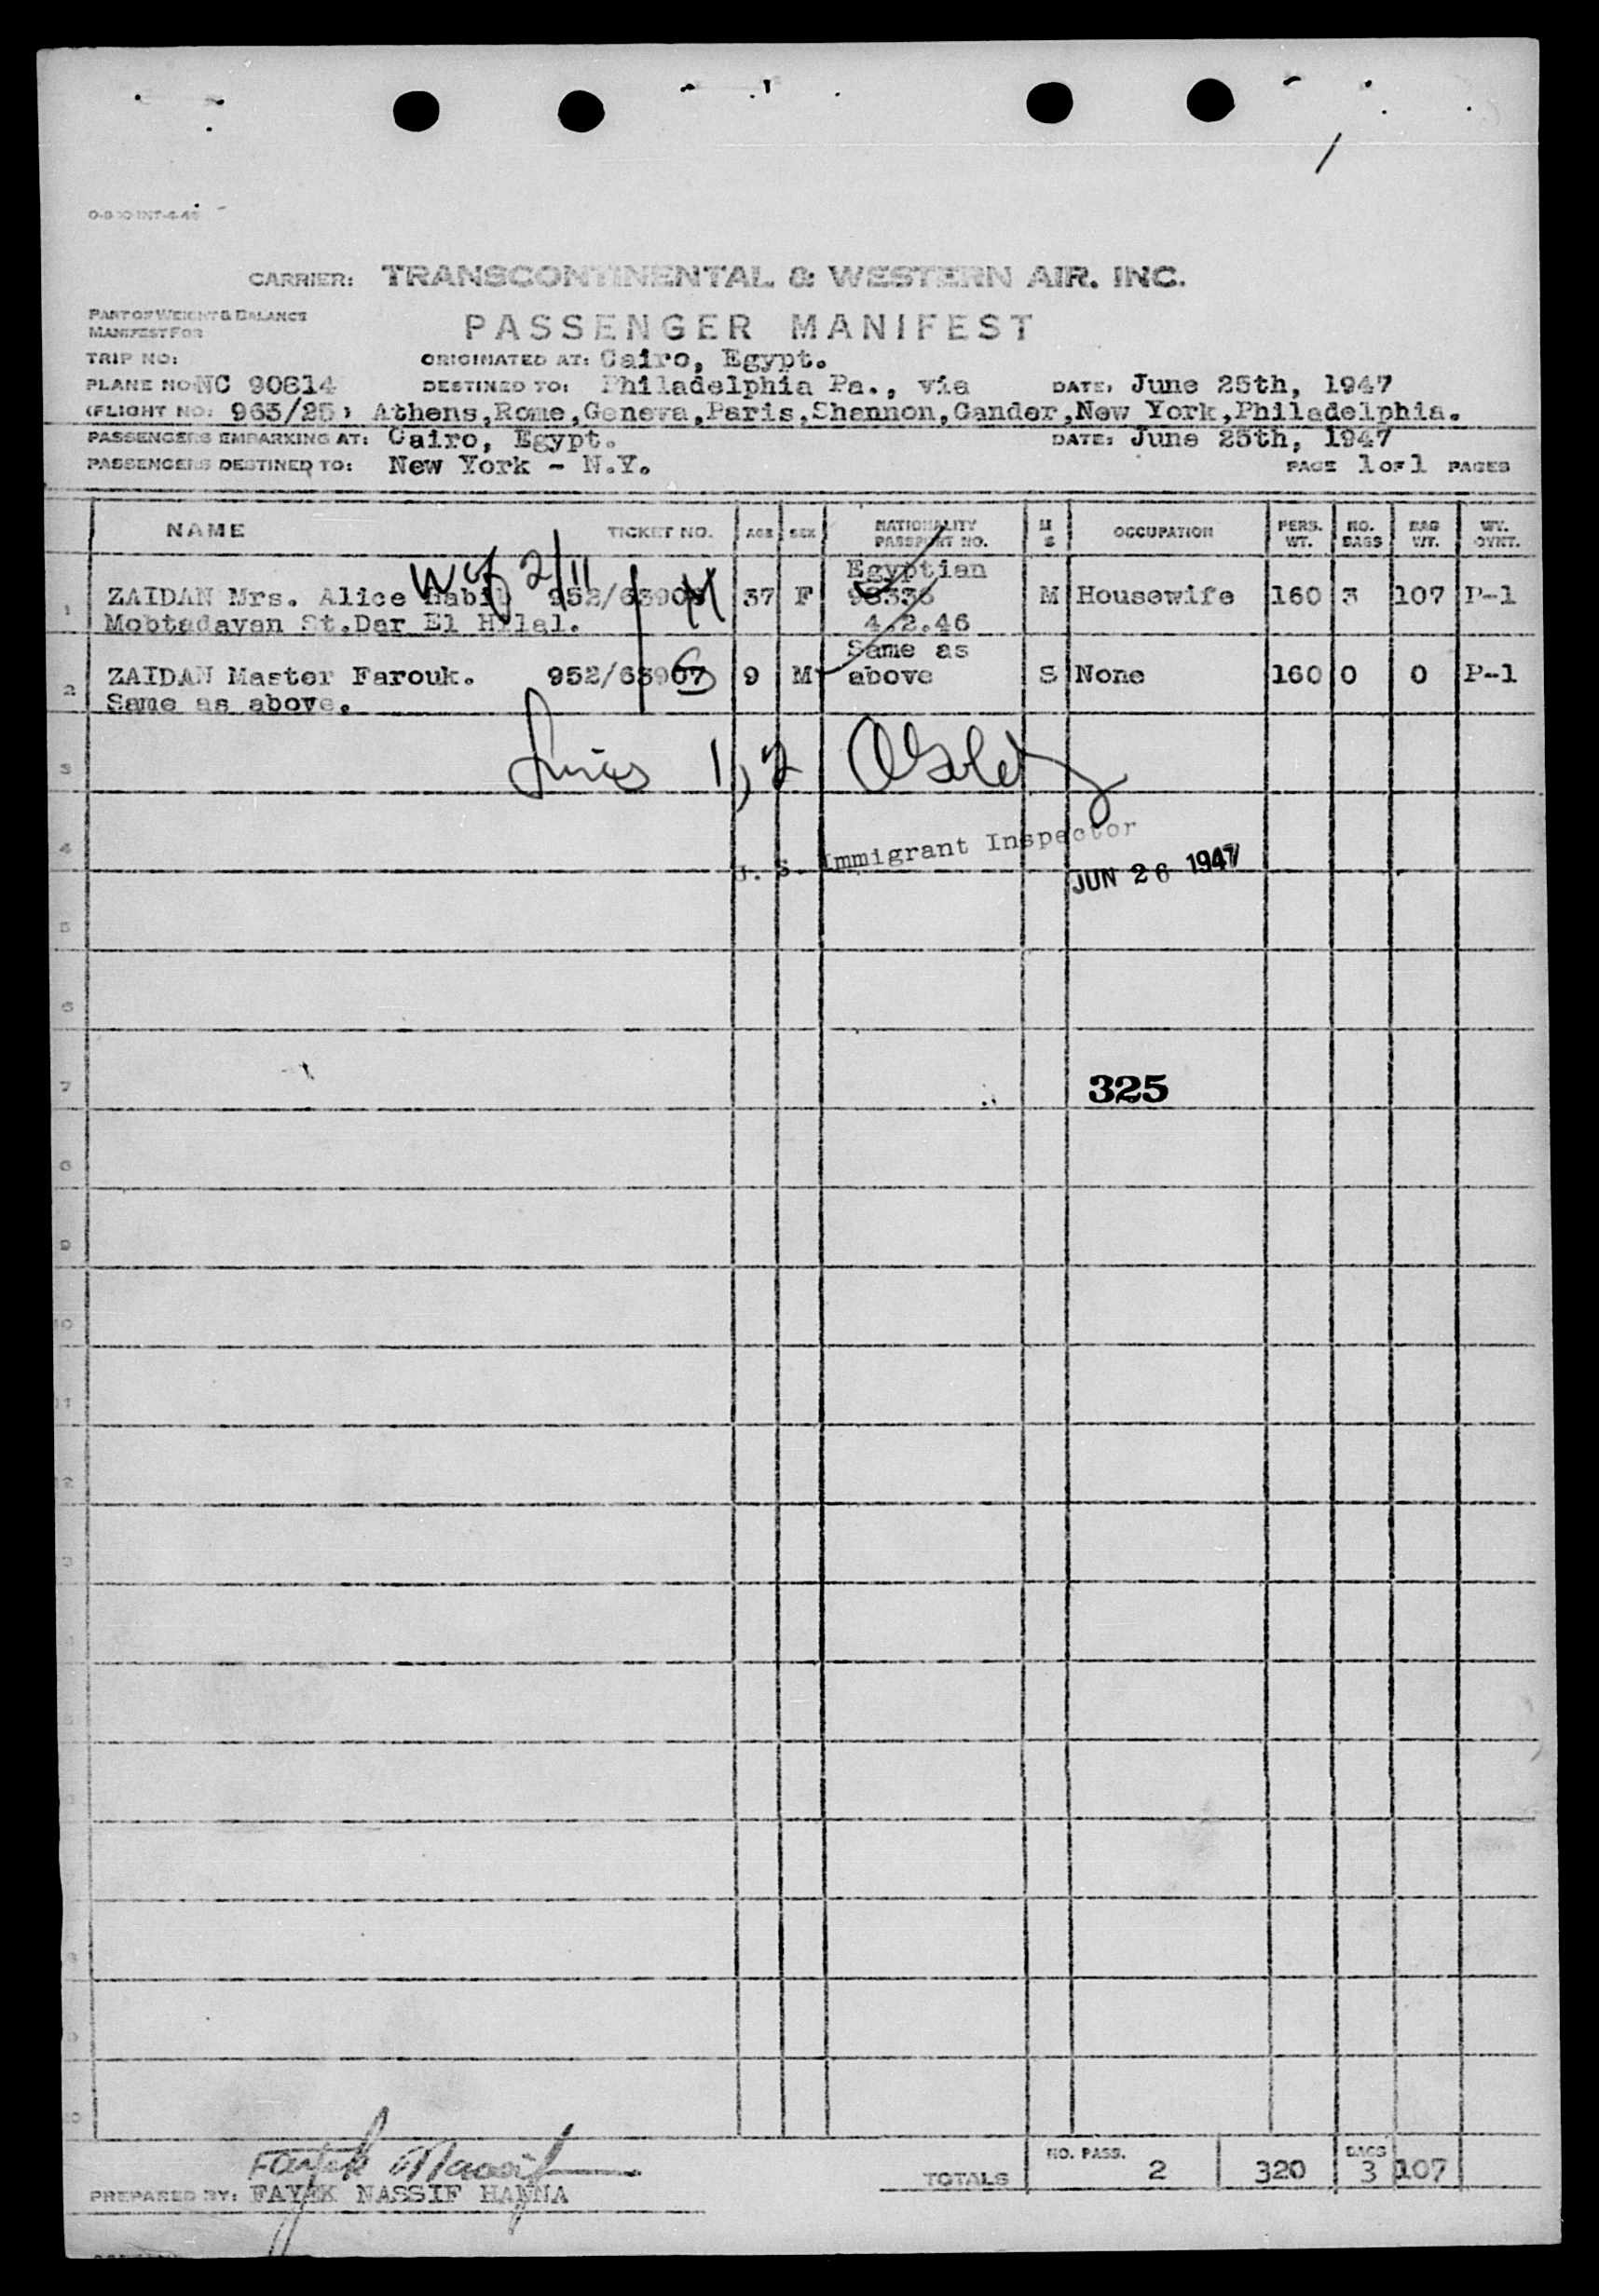 /
CARRIER: TRANSCONTINENTAL & WESTERN AIR. INC.
PART OF WEIGHT & BALANCE
MANIFEST FOR
PASSENGER MANIFEST
TRIP NO: ORIGINATED AT: Cairo, Egypt.
PLANE NO: NC 90814 DESTINED TO: Philadelphia Pa., via DATE: June 25th, 1947
(FLIGHT NO: 963/25) Athens,Rome,Geneva,Paris,Shannon,Gander,New York,Philadelphia.
PASSENGERS EMBARKING AT: Cairo, Egypt. DATE: June 25th, 1947
PASSENGERS DESTINED TO: New York - N.Y. PAGE 1 OF 1 PAGES
NAME TICKET NO. AGE SEX NATIONALITY PASSPORT NO. M S OCCUPATION PERS. WT. NO. BAGS BAG WT. WT. OVNT.
2/11
Egyptian
1 ZAIDAN Mrs. Alice Habib 952/6390 37 F 98336 M Housewife 160 3 107 P-1
Mobtadayan St.Dar El Hilal. 4.2.46
Same as
2 ZAIDAN Master Farouk. 952/6390 9 M above S None 160 0 0 P-1
Same as above.
3 Lines 1,2
4 U. S. Immigrant Inspector
JUN 26 1947
5
6
7 325
8
9
10
11
12
TOTALS NO. PASS. 2 320 BAGS 3 107
PREPARED BY: FAYEK NASSIF HANNA